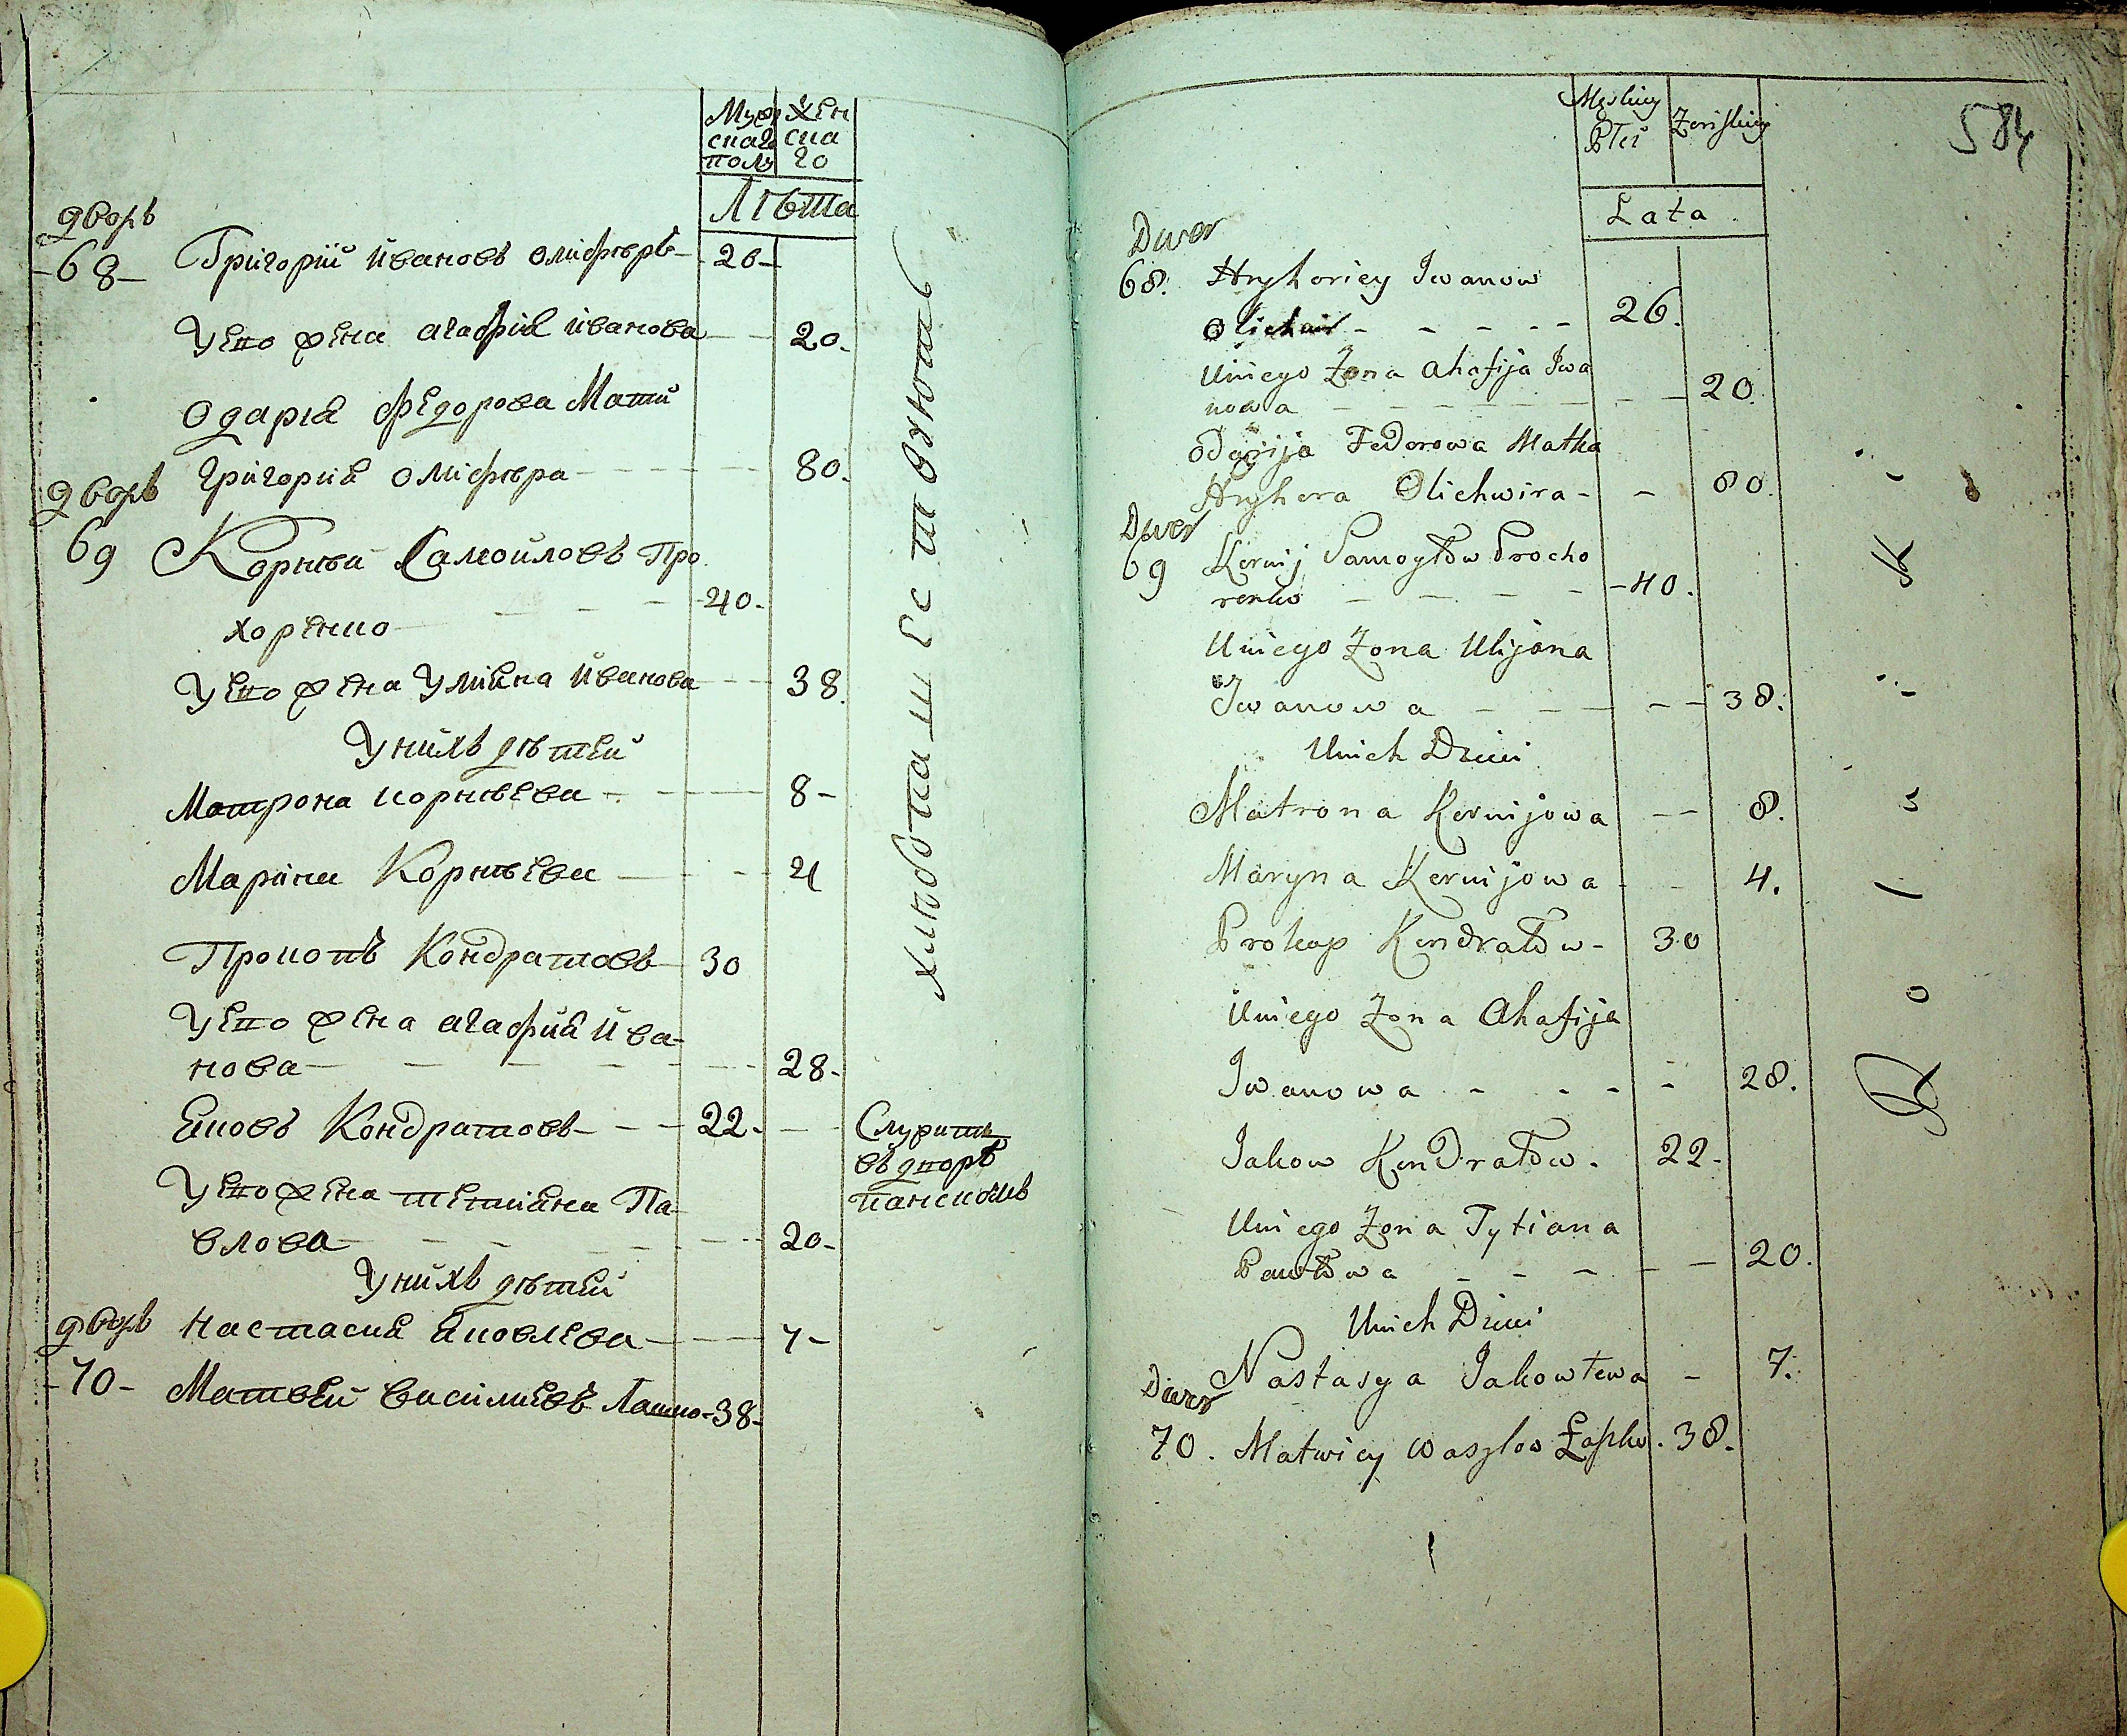 Муж
скаго
полу
Жен
ска
го
Лѣта
дворъ
68 Григорій Ивановъ Оліфѣръ 26
У его жена Агафія Иванова 20.
Одарія Федорова Мати
Григорія Оліфѣра 80.
дворъ
69 Корнѣй Самойловъ Про
хоренко 40.
У его жена Уліяна Иванова 38.
У нихъ дѣтей
Матрона Корнѣева 8
Марина Корнѣева 4
Прокопъ Кондратовъ 30
У его жена Агафия Ива-
нова 28
Яковъ Кондратовъ 22.
Служитъ
въ дворѣ
панскомъ
У его жена Тетіяна Па
влова 20
У нихъ дѣтей
дворъ Настасия Яковлева 7
70 Матвей Василиевъ Лапко 38
хлѣбопашествуютъ
584
Męskiey
Płci
Żeńskiey
Lata
Dwor
68. Hryhoriey Iwanow
Olichwir 26.
Uniego Żona Ahafija Iwa
nowa 20.
Odarija Fedorowa Matka
Hryhora Olichwira 80.
Dwor
69 Kornij Samoyłow Procho
renko 40.
Uniego Żona Ulijana
Iwanowa 38.
Unich Dzieci
Matrona Kornijowa 8.
Maryna Kornijowa 4.
Prokop Kondratow 30
Uniego Żona Ahafija
Iwanowa 28.
Jakow Kondratow. 22.
Uniego Żona Tytiana
Pawłowa 20.
Unich Dzieci
Nastasya Jakowlewa 7.
Dwor
70. Matwiey Wasylow Łapko. 38.